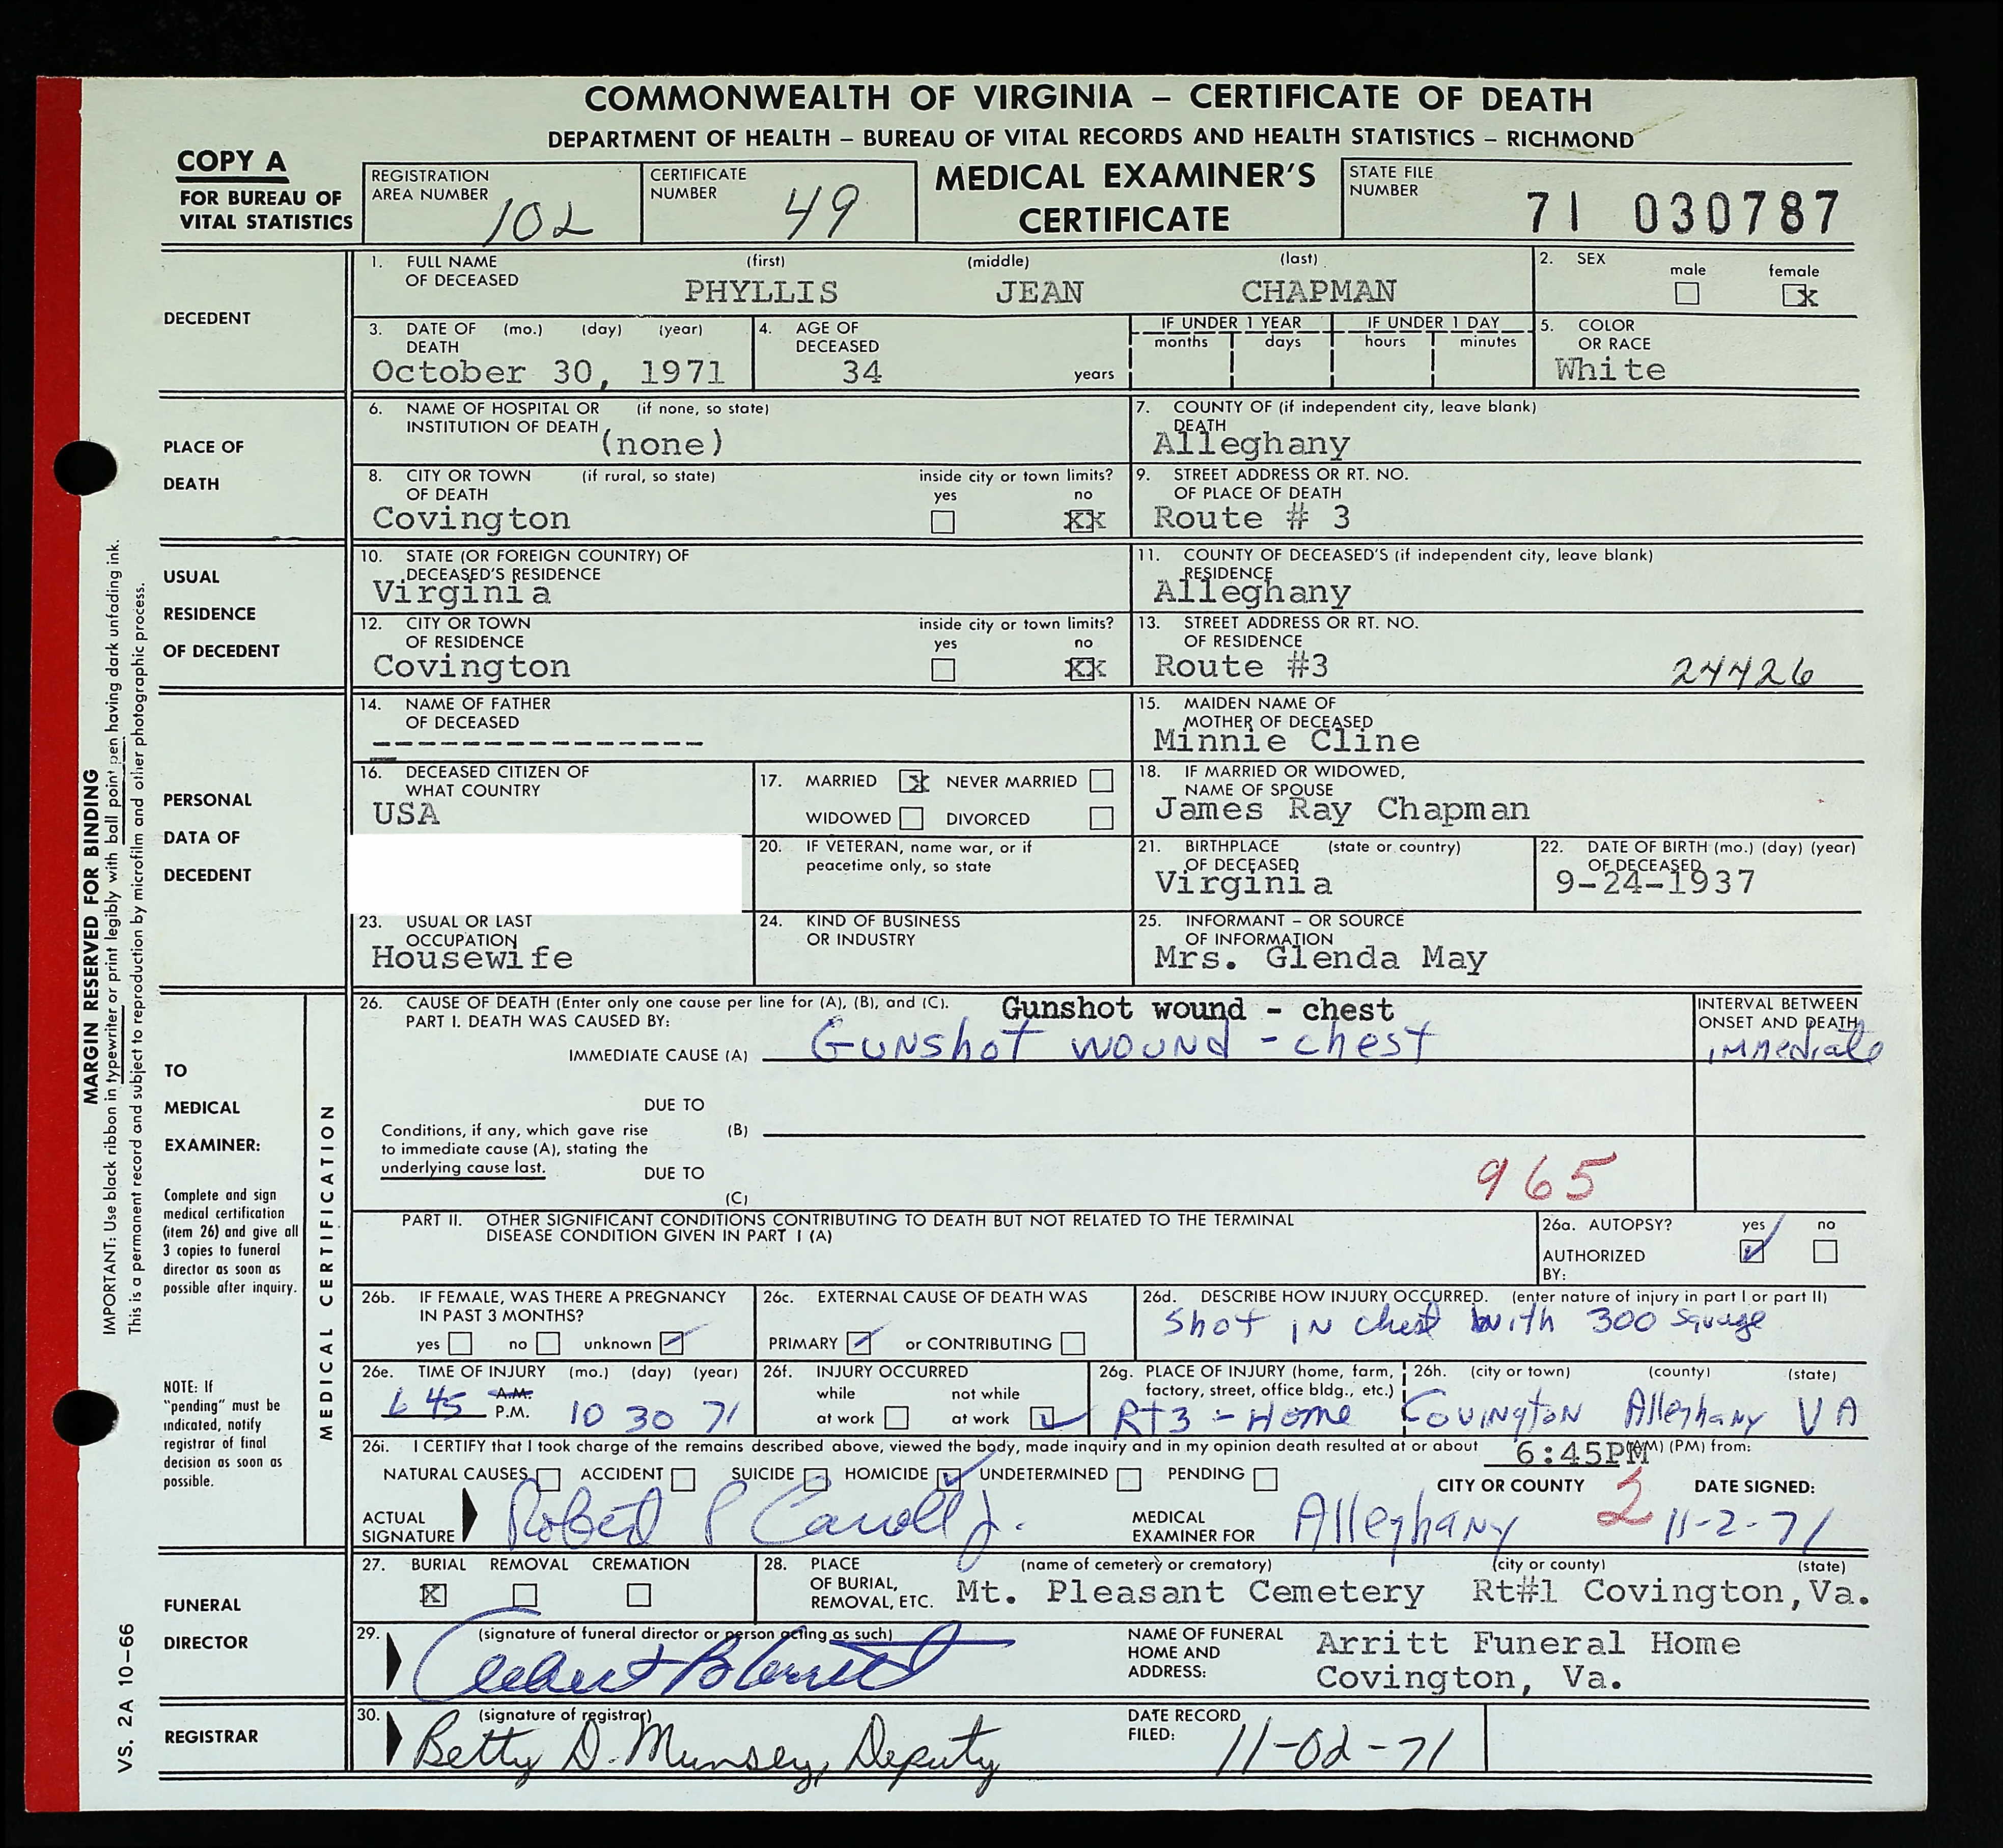 COMMONWEALTH OF VIRGINIA – CERTIFICATE OF DEATH
DEPARTMENT OF HEALTH – BUREAU OF VITAL RECORDS AND HEALTH STATISTICS – RICHMOND
COPY A
FOR BUREAU OF
VITAL STATISTICS
REGISTRATION
AREA NUMBER 102
CERTIFICATE
NUMBER 49
MEDICAL EXAMINER'S
CERTIFICATE
STATE FILE
NUMBER 71 030787
DECEDENT
1. FULL NAME (first) (middle) (last)
OF DECEASED PHYLLIS JEAN CHAPMAN
2. SEX
male female
x
3. DATE OF (mo.) (day) (year)
DEATH
October 30, 1971
4. AGE OF
DECEASED
34 years
IF UNDER 1 YEAR IF UNDER 1 DAY
months days hours minutes
5. COLOR
OR RACE
White
PLACE OF
DEATH
6. NAME OF HOSPITAL OR (if none, so state)
INSTITUTION OF DEATH
(none)
7. COUNTY OF (if independent city, leave blank)
DEATH
Alleghany
8. CITY OR TOWN (if rural, so state) inside city or town limits?
OF DEATH yes no
Covington XX
9. STREET ADDRESS OR RT. NO.
OF PLACE OF DEATH
Route # 3
USUAL
RESIDENCE
OF DECEDENT
10. STATE (OR FOREIGN COUNTRY) OF
DECEASED'S RESIDENCE
Virginia
11. COUNTY OF DECEASED'S (if independent city, leave blank)
RESIDENCE
Alleghany
12. CITY OR TOWN inside city or town limits?
OF RESIDENCE yes no
Covington XX
13. STREET ADDRESS OR RT. NO.
OF RESIDENCE
Route #3 24426
PERSONAL
DATA OF
DECEDENT
14. NAME OF FATHER
OF DECEASED
----------------
15. MAIDEN NAME OF
MOTHER OF DECEASED
Minnie Cline
16. DECEASED CITIZEN OF
WHAT COUNTRY
USA
17. MARRIED x NEVER MARRIED
WIDOWED DIVORCED
18. IF MARRIED OR WIDOWED,
NAME OF SPOUSE
James Ray Chapman
20. IF VETERAN, name war, or if
peacetime only, so state
21. BIRTHPLACE (state or country)
OF DECEASED
Virginia
22. DATE OF BIRTH (mo.) (day) (year)
OF DECEASED
9-24-1937
23. USUAL OR LAST
OCCUPATION
Housewife
24. KIND OF BUSINESS
OR INDUSTRY
25. INFORMANT – OR SOURCE
OF INFORMATION
Mrs. Glenda May
TO
MEDICAL
EXAMINER:
Complete and sign
medical certification
(item 26) and give all
3 copies to funeral
director as soon as
possible after inquiry.
NOTE: If
"pending" must be
indicated, notify
registrar of final
decision as soon as
possible.
MEDICAL CERTIFICATION
26. CAUSE OF DEATH (Enter only one cause per line for (A), (B), and (C). Gunshot wound - chest
PART I. DEATH WAS CAUSED BY:
IMMEDIATE CAUSE (A) Gunshot wound - chest
INTERVAL BETWEEN
ONSET AND DEATH
immediate
DUE TO
Conditions, if any, which gave rise (B)
to immediate cause (A), stating the
underlying cause last. DUE TO
(C)
965
PART II. OTHER SIGNIFICANT CONDITIONS CONTRIBUTING TO DEATH BUT NOT RELATED TO THE TERMINAL
DISEASE CONDITION GIVEN IN PART I (A)
26a. AUTOPSY? yes no
AUTHORIZED
BY:
26b. IF FEMALE, WAS THERE A PREGNANCY
IN PAST 3 MONTHS?
yes no unknown
26c. EXTERNAL CAUSE OF DEATH WAS
PRIMARY or CONTRIBUTING
26d. DESCRIBE HOW INJURY OCCURRED. (enter nature of injury in part I or part II)
Shot in chest with 300 Savage
26e. TIME OF INJURY (mo.) (day) (year)
6 45 A.M.
P.M. 10 30 71
26f. INJURY OCCURRED
while not while
at work at work
26g. PLACE OF INJURY (home, farm,
factory, street, office bldg., etc.)
Rt 3 - Home
26h. (city or town) (county) (state)
Covington Alleghany VA
26i. I CERTIFY that I took charge of the remains described above, viewed the body, made inquiry and in my opinion death resulted at or about 6:45PM (AM) (PM) from:
NATURAL CAUSES ACCIDENT SUICIDE HOMICIDE UNDETERMINED PENDING
CITY OR COUNTY DATE SIGNED:
ACTUAL
SIGNATURE Robert P Carroll Jr.
MEDICAL
EXAMINER FOR Alleghany 2 11-2-71
FUNERAL
DIRECTOR
27. BURIAL REMOVAL CREMATION
X
28. PLACE (name of cemetery or crematory) (city or county) (state)
OF BURIAL,
REMOVAL, ETC. Mt. Pleasant Cemetery Rt#1 Covington,Va.
29. (signature of funeral director or person acting as such)
NAME OF FUNERAL
HOME AND
ADDRESS:
Arritt Funeral Home
Covington, Va.
REGISTRAR
30. (signature of registrar)
Betty D. Munsey, Deputy
DATE RECORD
FILED: 11-02-71
MARGIN RESERVED FOR BINDING
IMPORTANT: Use black ribbon in typewriter or print legibly with ball point pen having dark unfading ink.
This is a permanent record and subject to reproduction by microfilm and other photographic process.
VS. 2A 10–66